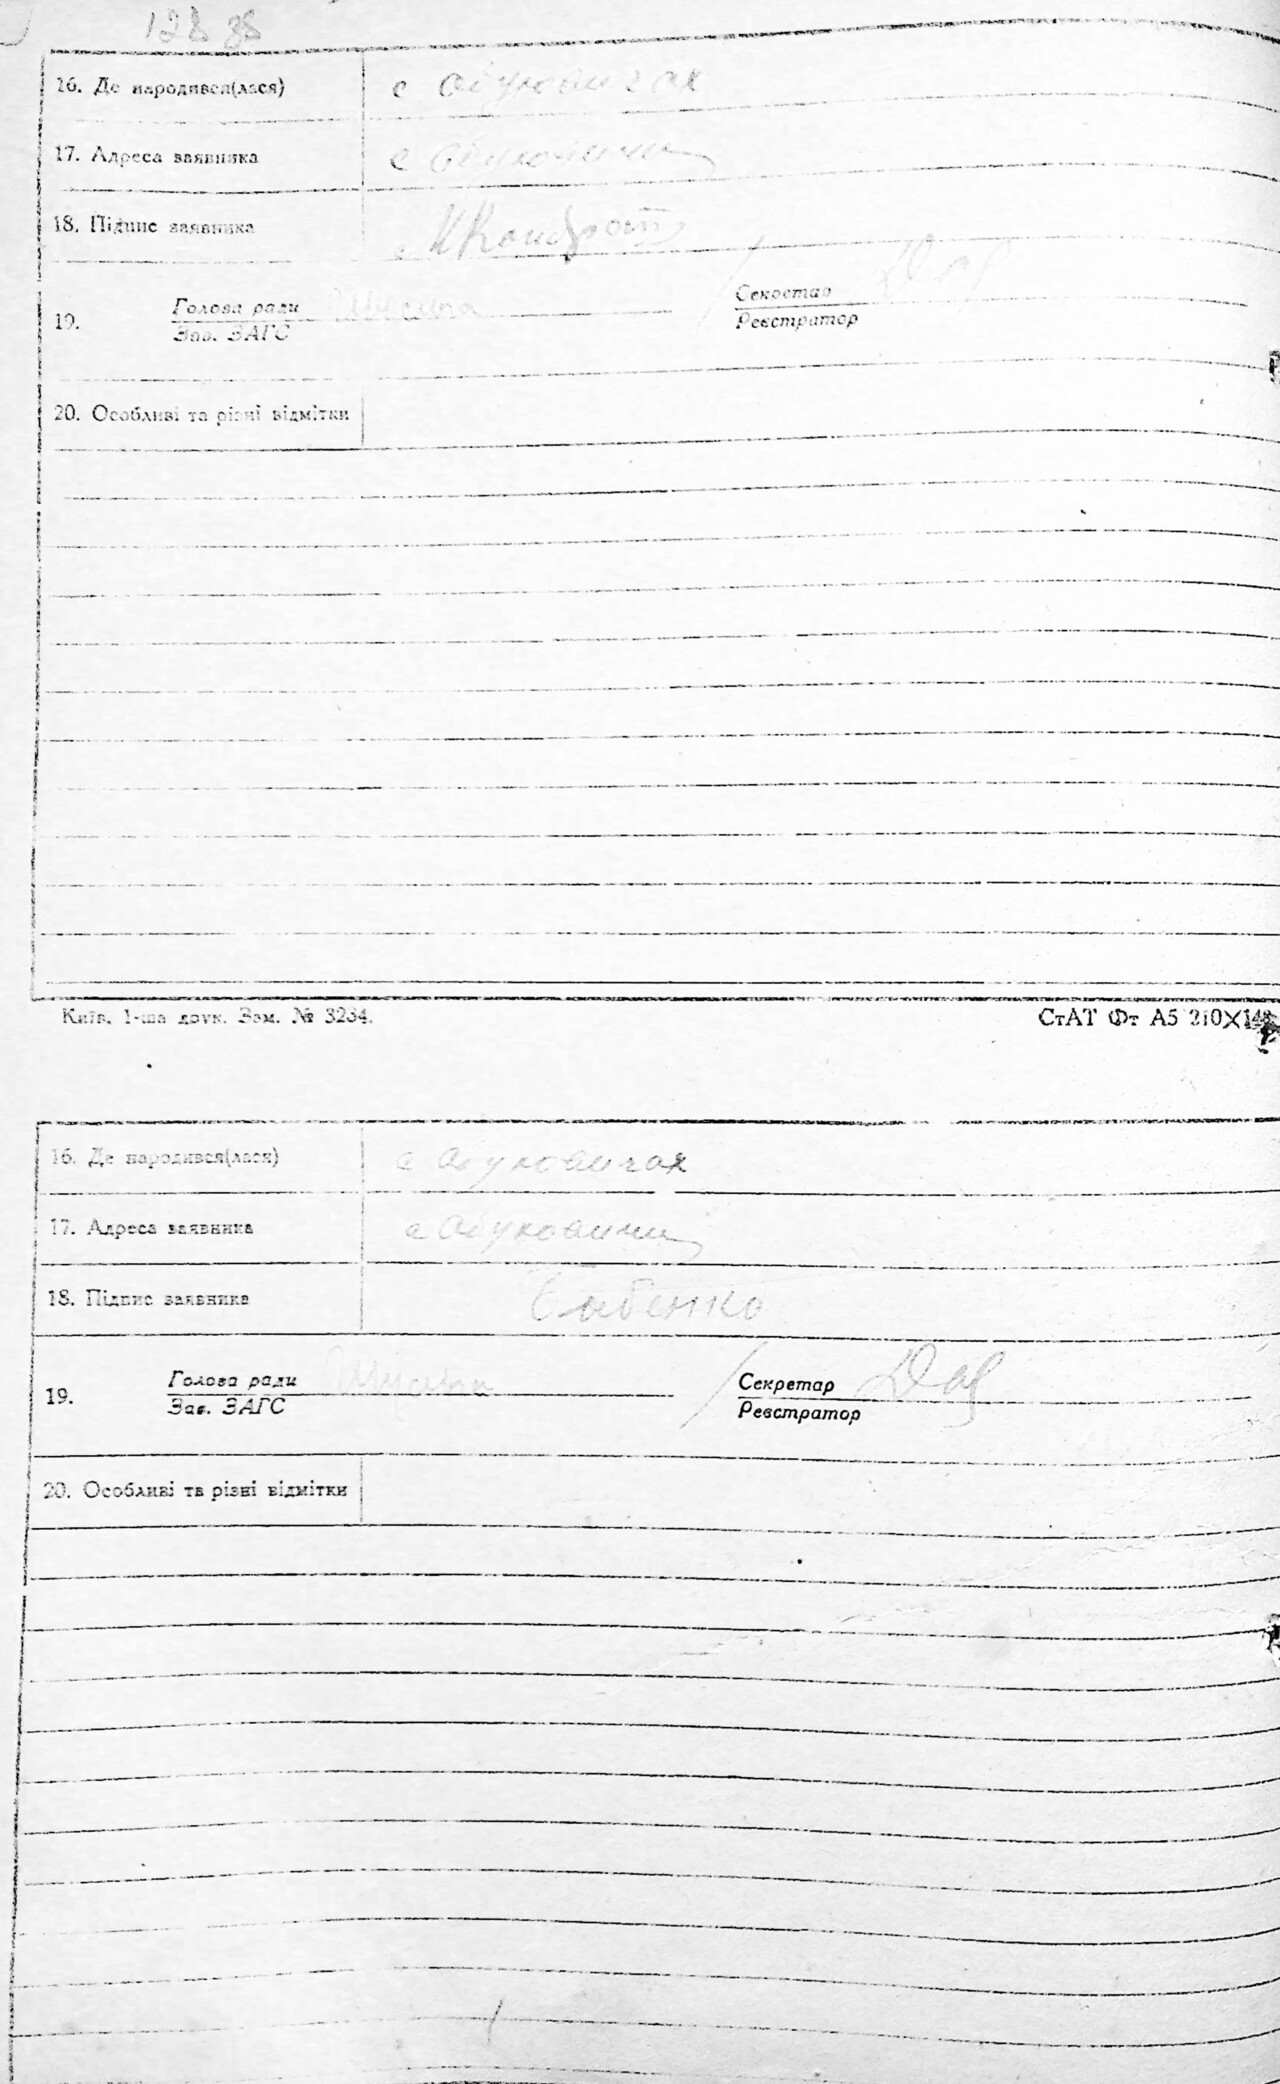 128
16. Де народився(лася) с Обуховичах
17. Адреса заявника с Обуховичи
18. Підпис заявника
19. Голова ради Секретар
Зав. ЗАГС Реєстратор
20. Особливі та різні відмітки
Київ. 1-ша друк. Зам. № 3234. СтАТ Фт А5 210×148
16. Де народився(лася) с Обуховичах
17. Адреса заявника с Обуховичи
18. Підпис заявника Бабенко
19. Голова ради Секретар
Зав. ЗАГС Реєстратор
20. Особливі та різні відмітки